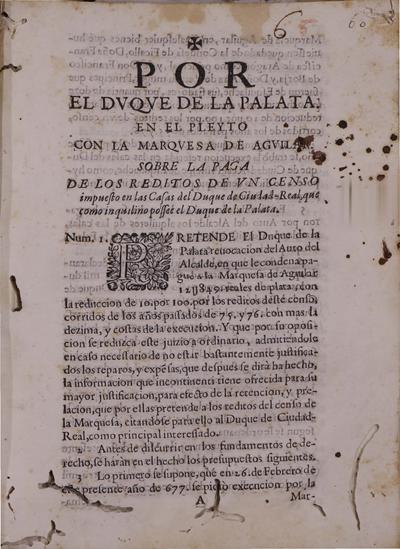 6
60
✠
POR
EL DVQVE DE LA PALATA:
EN EL PLEYTO
CON LA MARQVESA DE AGVILAR
SOBRE LA PAGA
DE LOS REDITOS DE VN CENSO
impuesto en las Casas del Duque de Ciudad-Real, que
como inquilino posseè el Duque de la Palata.
Num. 1. PRETENDE El Duque de la
Palata reuocacion del Auto del
Alcalde, en que le condena pa-
gue a la Marquesa de Aguilar
12U849. reales de plata, con
la reduccion de 10. por 100. por los reditos deste censo,
corridos de los años passados de 75. y 76. con mas la
dezima, y costas de la execucion. Y que por su oposi-
cion se reduzca este juizio a ordinario, admitiendole
en caso necessario de no estar bastantemente justifica-
dos los reparos, y expesas, que despues se dirà ha hecho,
la informacion que incontinenti tiene ofrecida para su
mayor justificacion, para efecto de la retencion, y pre-
lacion, que por ellas pretende a los reditos del censo de
la Marquesa, citandose para ello al Duque de Ciudad-
Real, como principal interesado.
2 Antes de discurrir en los fundamentos de de-
recho, se haràn en el hecho los presupuestos siguientes.
3 Lo primero se supone, que en 26. de Febrero de
este presente año de 677. se pidiò execucion por la
A
Mar-